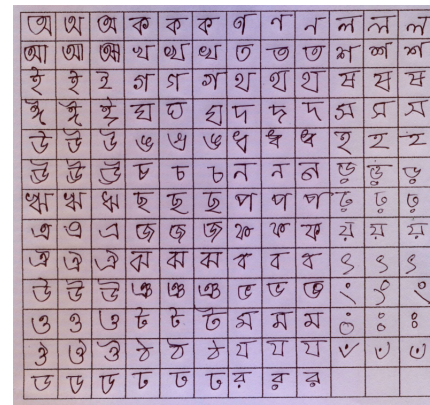 অ অ অ ক ক ক ণ ণ ণ ল ল ল
আ আ আ খ খ খ ত ত ত শ শ শ
ই ই ই গ গ গ থ থ থ ষ ষ ষ
ঈ ঈ ঈ ঘ ঘ ঘ দ দ দ স স স
উ উ উ ঙ ঙ ঙ ধ ধ ধ হ হ হ
ঊ ঊ ঊ চ চ চ ন ন ন ড় ড় ড়
ঋ ঋ ঋ ছ ছ ছ প প প ঢ় ঢ় ঢ়
এ এ এ জ জ জ ফ ফ ফ য় য় য়
ঐ ঐ ঐ ঝ ঝ ঝ ব ব ব ৎ ৎ ৎ
উ উ উ ঞ ঞ ঞ ভ ভ ভ ং ং ং
ও ও ও ট ট ট ম ম ম ঃ ঃ ঃ
ঔ ঔ ঔ ঠ ঠ ঠ য য য ঁ ঁ ঁ
ড ড ড ঢ ঢ ঢ র র র